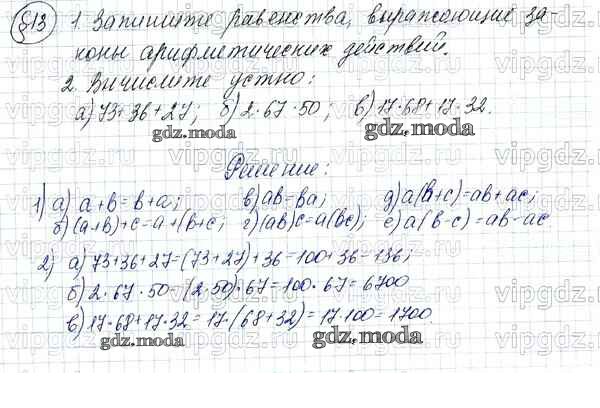 §13 1. Запишите равенства, выражающие за-
коны арифметических действий.
2. Вычислите устно:
а) 73+36+27; б) 2·67·50; в) 17·68+17·32.
gdz.moda gdz.moda
Решение:
1) а) a+b=b+a; в) ab=ba; д) a(b+c)=ab+ac;
б) (a+b)+c=a+(b+c; г) (ab)c=a(bc); е) a(b-c)=ab-ac
2) а) 73+36+27=(73+27)+36=100+36=136;
б) 2·67·50=(2·50)·67=100·67=6700
в) 17·68+17·32=17·(68+32)=17·100=1700.
gdz.moda gdz.moda